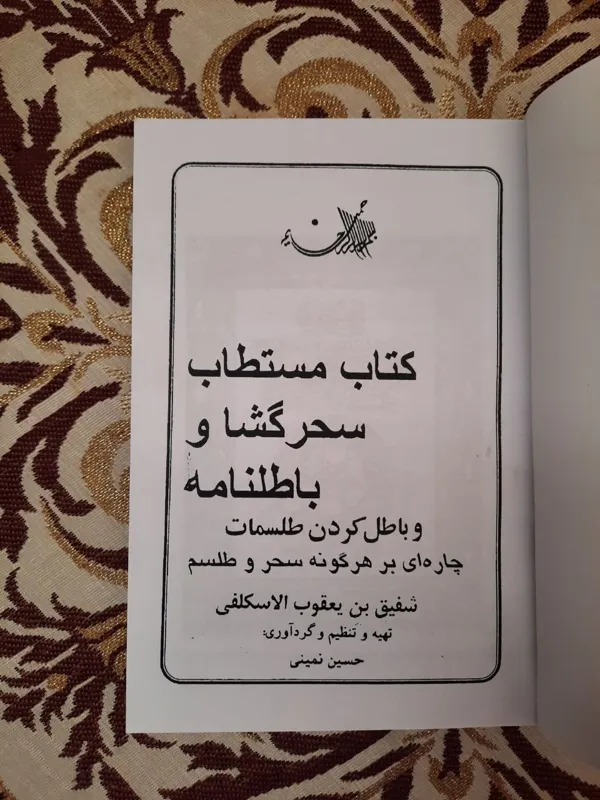 بسم الله الرحمن الرحیم
کتاب مستطاب
سحرگشا و
باطلنامه
و باطل کردن طلسمات
چاره‌ای بر هرگونه سحر و طلسم
شفیق بن یعقوب الاسکلفی
تهیه و تنظیم و گردآوری:
حسین نمینی